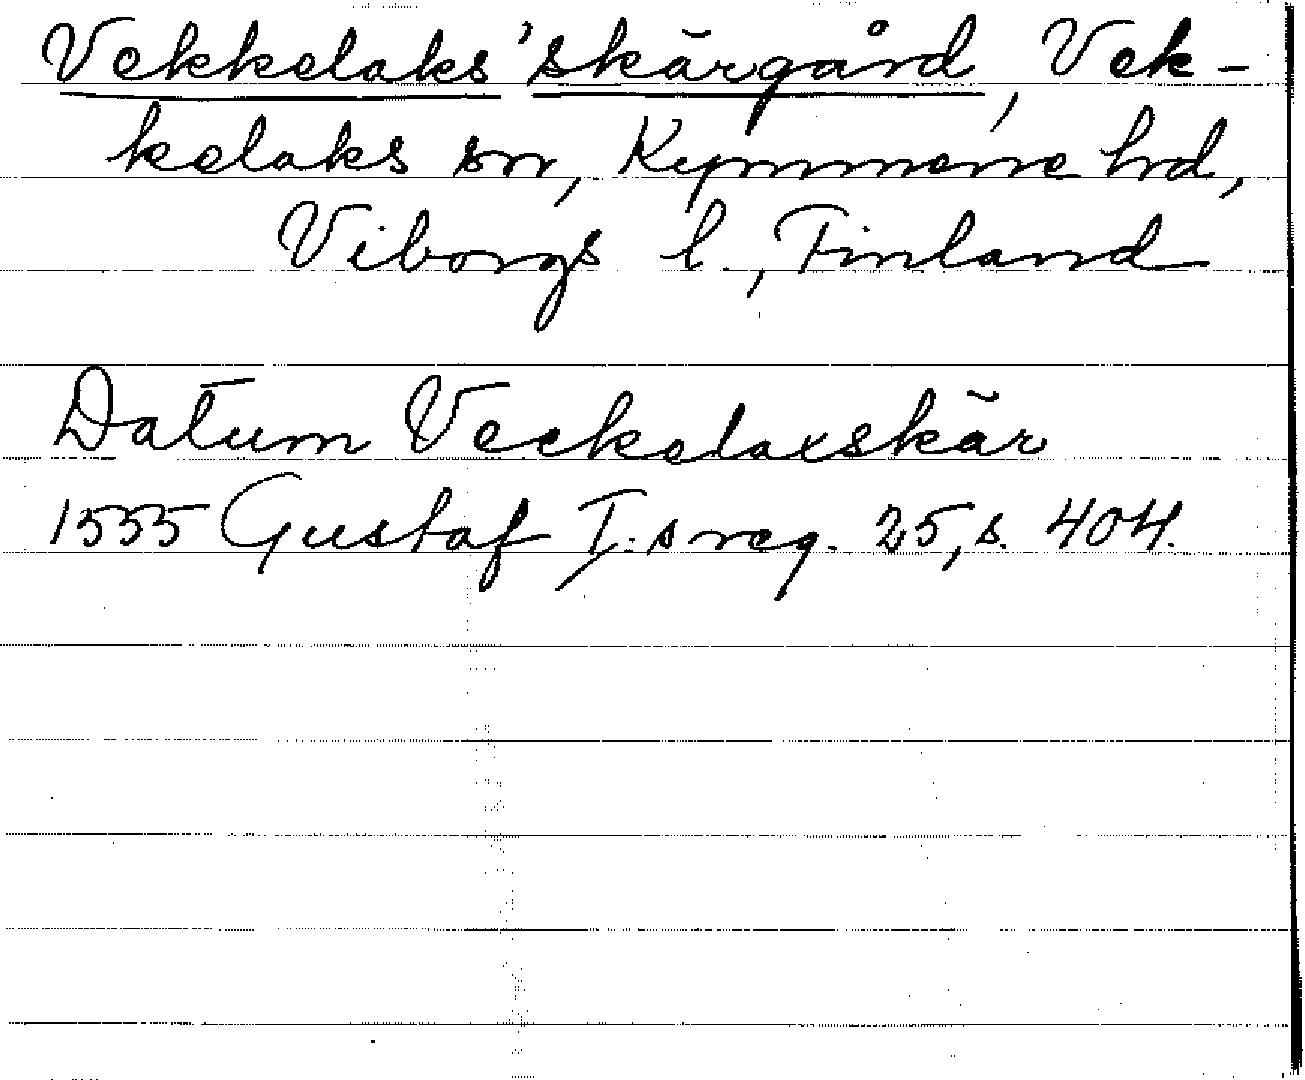 Vekkelaks' skärgård, Vek-
kelaks sn, Kymmene hd,
Viborgs l., Finland
Datum Veckelaxskär
1555 Gustaf I:s reg. 25, s. 404.